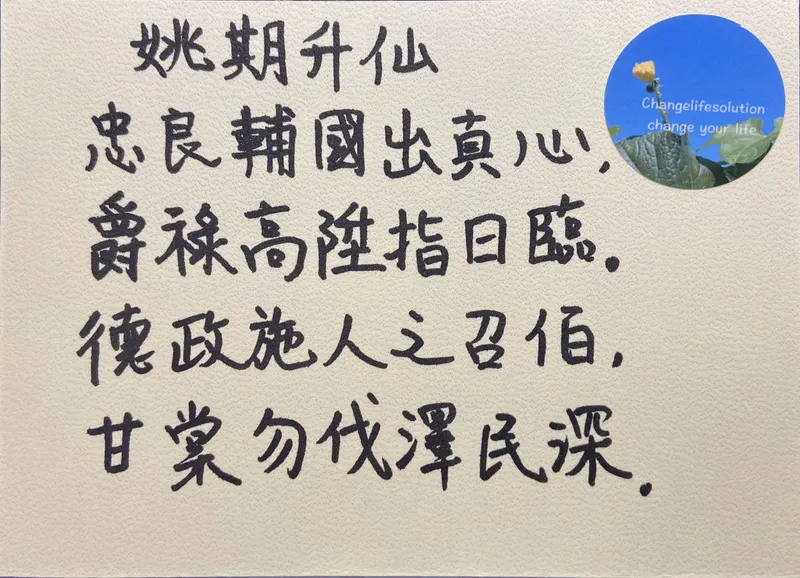 姚期升仙
忠良輔國出真心,
爵祿高陞指日臨.
德政施人之召伯,
甘棠勿伐澤民深.
Changelifesolution
change your life